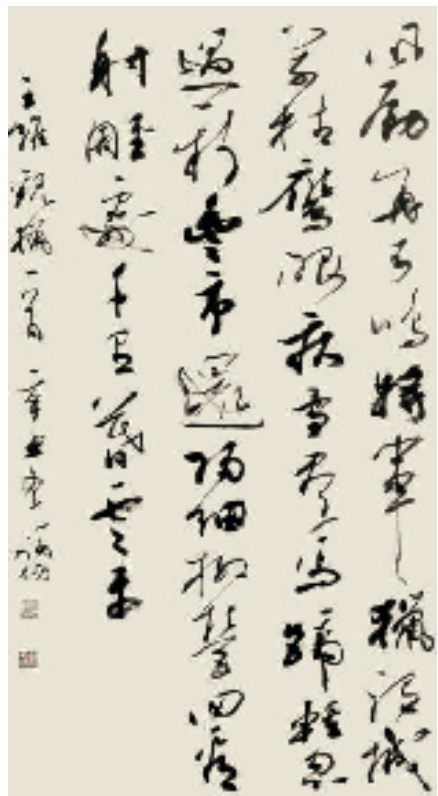 風勁角弓鳴將軍獵渭城
草枯鷹眼疾雪盡馬蹄輕忽
過新豐市還歸細柳營回看
射雕處千里暮雲平
王維觀獵一首辛丑